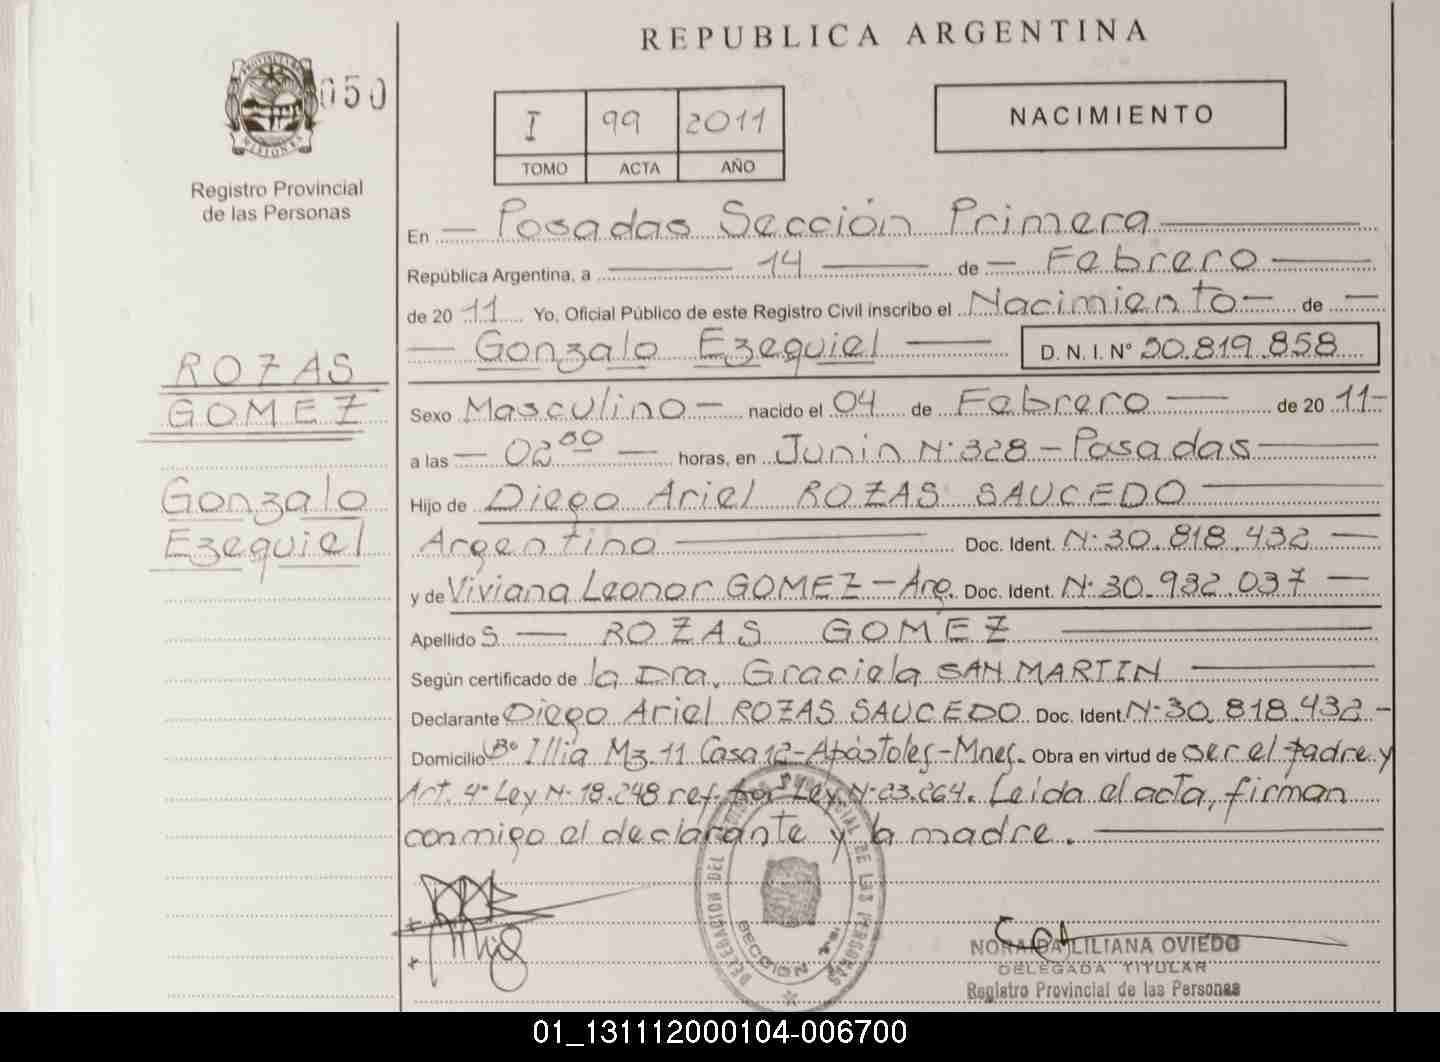 REPUBLICA ARGENTINA
PROVINCIA DE
MISIONES
050
Registro Provincial
de las Personas
I 99 2011
TOMO ACTA AÑO
NACIMIENTO
En — Posadas Sección Primera
República Argentina, a 14 de — Febrero
de 2011 Yo, Oficial Público de este Registro Civil inscribo el Nacimiento — de —
— Gonzalo Ezequiel — D. N. I. Nº 50.819.858
ROZAS
GOMEZ
Gonzalo
Ezequiel
Sexo Masculino — nacido el 04 de Febrero — de 2011-
a las — 02 00 — horas, en Junin N° 328 - Posadas
Hijo de Diego Ariel ROZAS SAUCEDO
Argentino — Doc. Ident. N° 30.818.432 —
y de Viviana Leonor GOMEZ - Arg. Doc. Ident. N° 30.932.037 —
Apellido s — ROZAS GOMEZ
Según certificado de la Dra. Graciela SAN MARTIN
Declarante Diego Ariel ROZAS SAUCEDO Doc. Ident. N° 30.818.432 -
Domicilio B° Illia Mz. 11 Casa 12 - Apóstoles - Mnes. Obra en virtud de ser el padre y
Art. 4° Ley N° 18.248 ref. por Ley. N° 23.264. Leida el acta, firman
conmigo el declarante y la madre.
NORAIDA LILIANA OVIEDO
DELEGADA TITULAR
Registro Provincial de las Personas
01_131112000104-006700